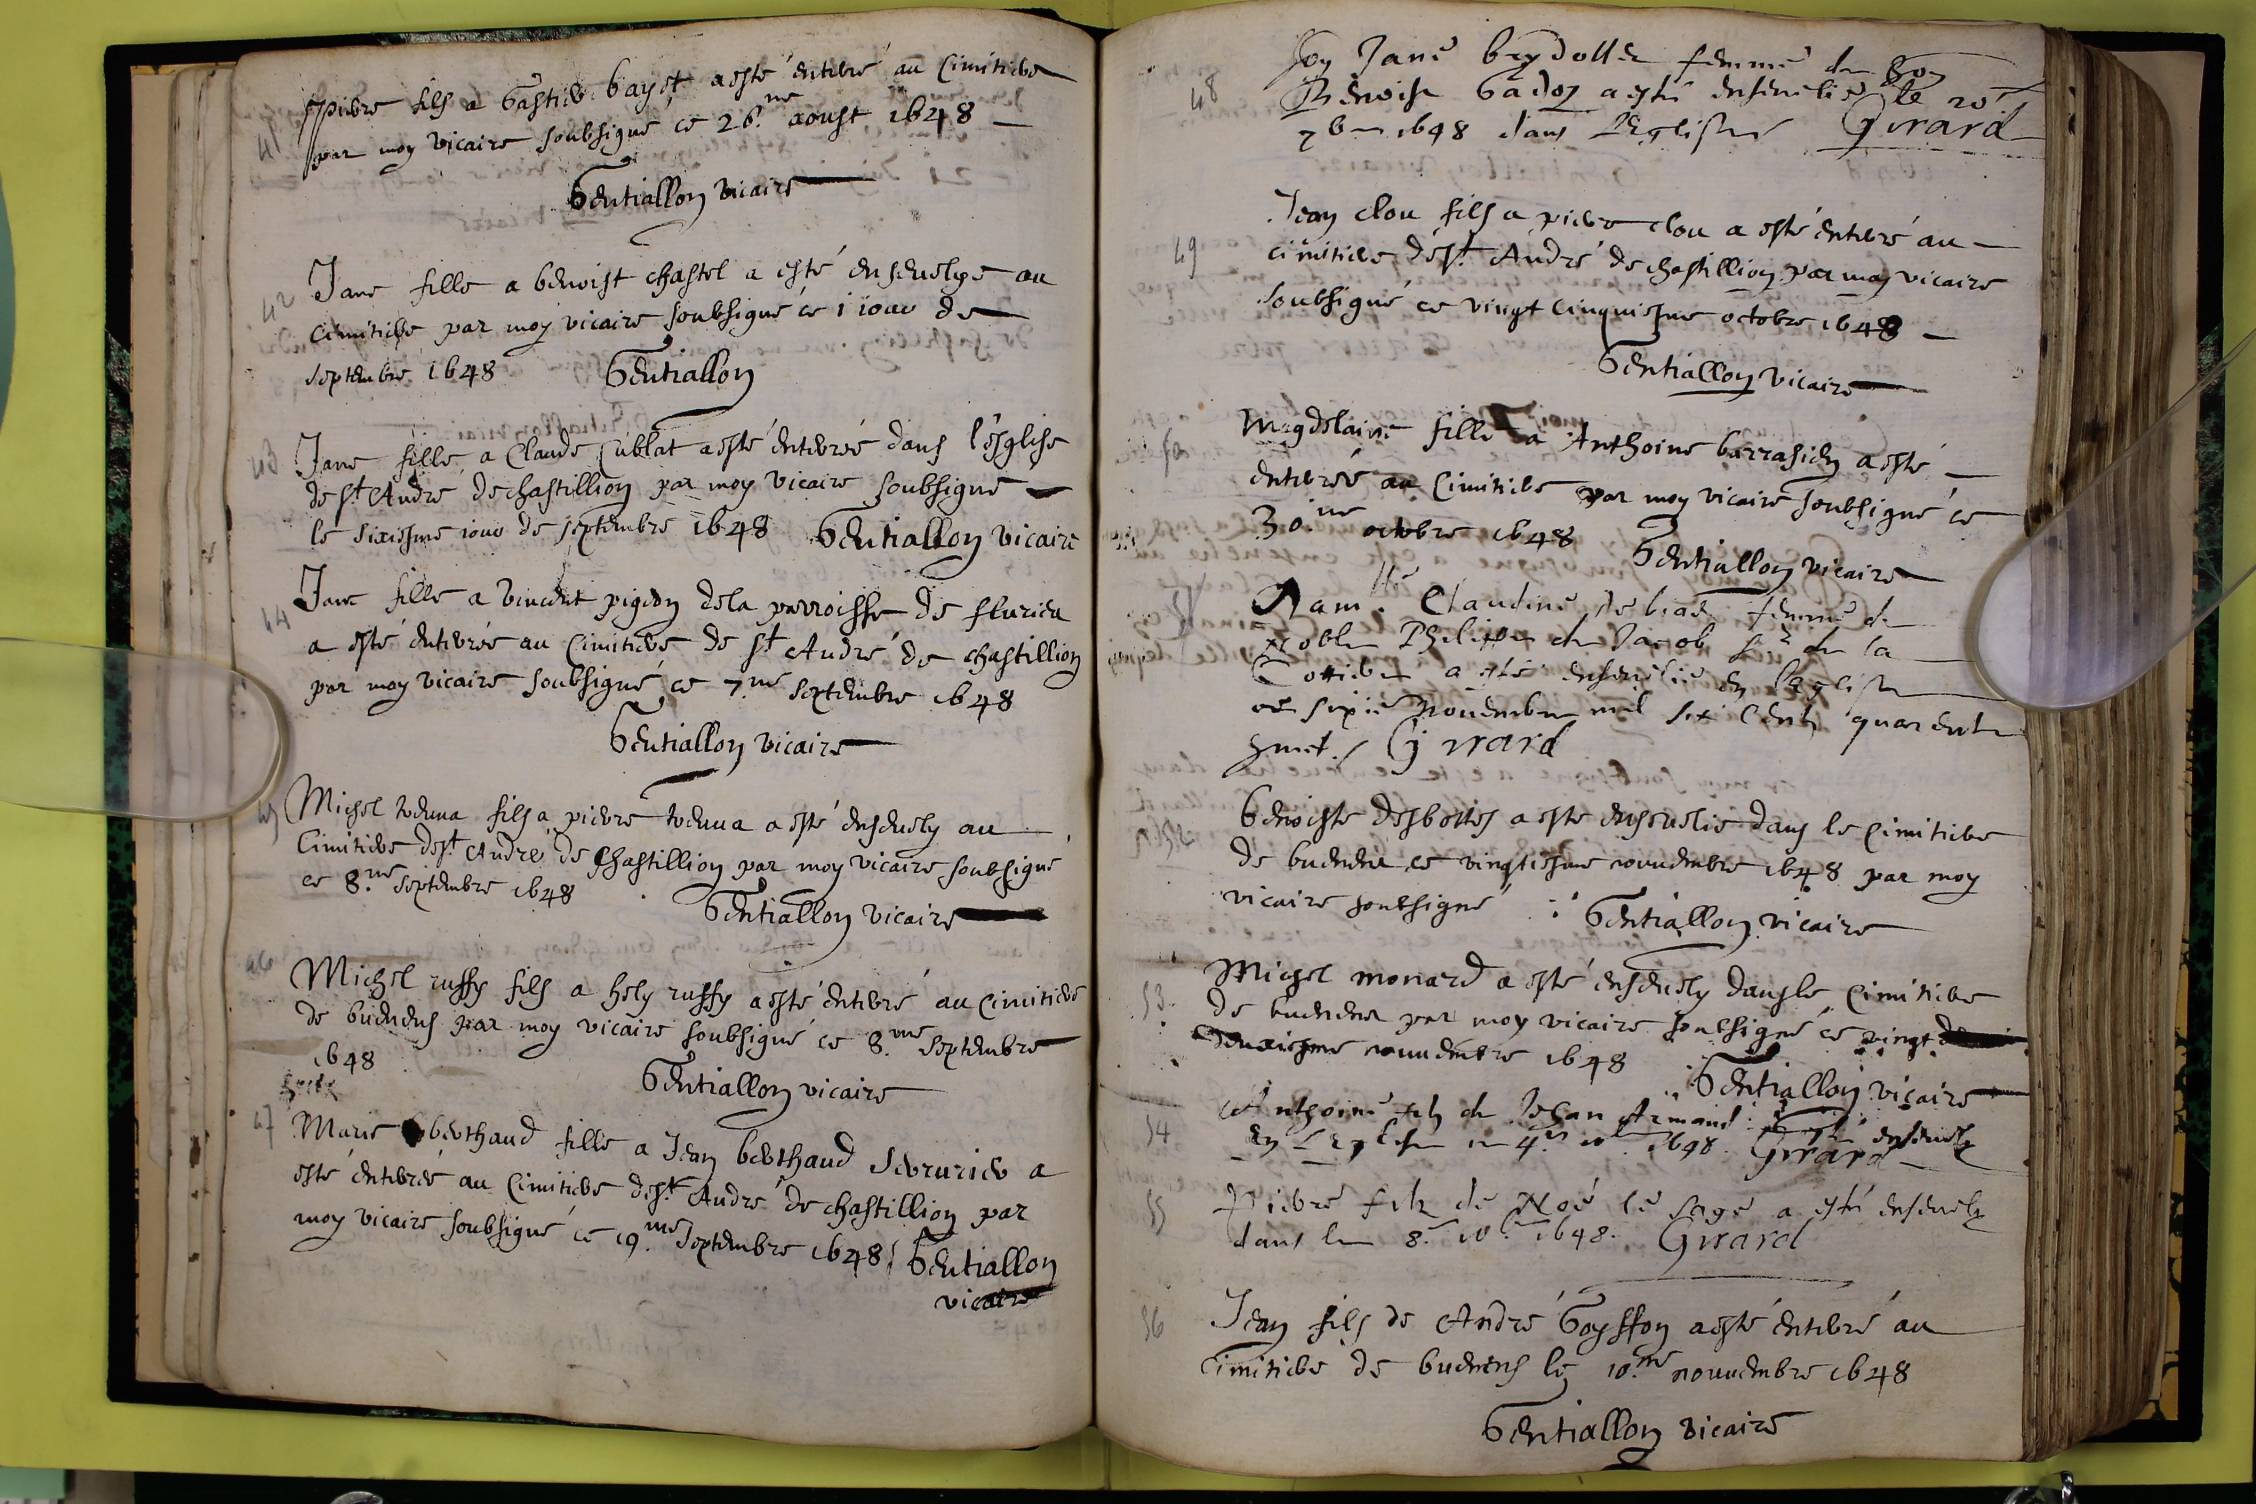 41
pierre fils a Gastid bayet a esté entérré au Cimitiere
par moy vicaire soubsigné ce 26.me aoust 1648
Gentiallon vicaire
42
Jane fille a benoist chastel a esté enseuelye au
cimitiere par moy vicaire soubsigné ce 1 iour de
septembre 1648 Gentiallon
43
Jane fille a Claude Cublat a esté enterrée dans l'ésglise
de st André de chastillion par moy vicaire soubsigné
le sixiesme iour de septembre 1648 Gentiallon vicaire
44
Jane fille a vincent pigeon dela parroisse de flurieu
a esté enterrée au Cimitiere de st André de chastillion
par moy vicaire soubsigné ce 7.me septembre 1648
Gentiallon vicaire
45
Michel fils a pierre a esté enseuely au
Cimitiere de st André de Chastillion par moy vicaire soubsigné
ce 8.me septembre 1648
Gentiallon vicaire
46
Michel ruffy fils a hely ruffy a esté entérré au Cimitiere
de buenens par moy vicaire soubsigné ce 8.me septembre
1648
Gentiallon vicaire
47
Marie berthaud fille a Jean berthaud serrurier a
esté entérrée au Cimitiere de st André de chastillion par
moy vicaire soubsigné ce 19.me septembre 1648 Gentiallon
vicaire
48
Jane femme de
Benoist Gadoz a esté enseuelie le 10
7bre 1648 dans l'Eglise Girard
49
Jean clou fils a pierre clou a esté entérré au
cimitiere de st André de chastillion par moy vicaire
soubsigné ce vingt Cinquiesme octobre 1648
Gentiallon vicaire
50
Magdelaine fille a Anthoine barrasien a esté
entérrée au Cimitiere par moy vicaire soubsigné ce
30.me octobre 1648
Gentiallon vicaire
Dam.lle Claudine de femme de
noble Philippe de Jacob sr de la
Cottiere a esté enseuelie en l'eglise
ce sixie Nouembre mil six Cents quarente
huict. Girard
52
benoiste desbottes a esté enseuelie dans le Cimitiere
de buenene ce vingtiesme nouuembre 1648 par moy
vicaire soubsigné Gentiallon vicaire
53
Michel monard a esté enseuely dans le Cimitiere
de buenene par moy vicaire soubsigné ce vingt
deuxiesme nouuembre 1648
Gentiallon vicaire
54
Anthoine filz de Jehan Armand a esté enseuely
En l'Eglise le 4me 10bre 1648. Girard
55
Pierre filz de Noé le sage a esté enseuely
dans le 8.e 10bre 1648. Girard
56
Jean fils de André Goyffon a esté entérré au
Cimitiere de buenens le 10.me nouuembre 1648
Gentiallon vicaire